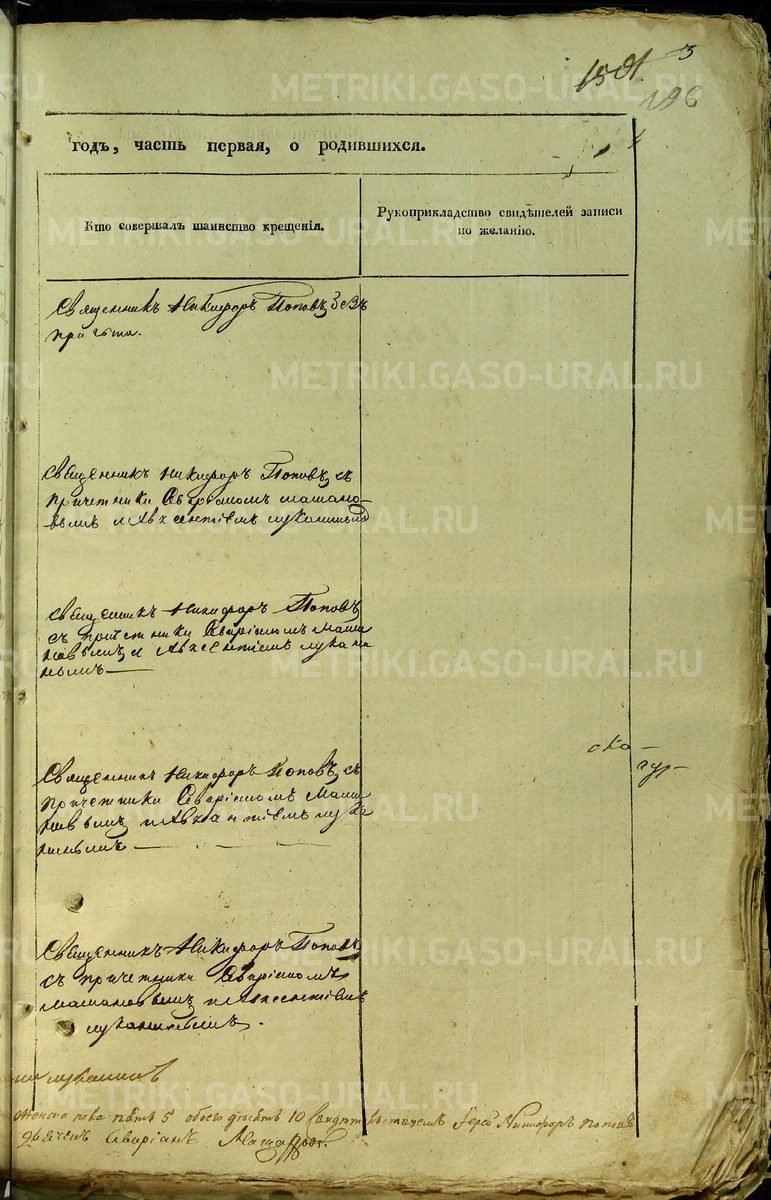 3
196
годъ, часть первая, о родившихся.
Кто совершалъ таинство крещенія.
Рукоприкладство свидѣтелей записи
по желанію.
Священникъ Никифоръ Поповъ безъ
причта.
Священникъ Никифоръ Поповъ съ
причетники
и Авксентіемъ Луканинымъ
Священникъ Никифоръ Поповъ
съ причетники Аваріаномъ Мама
новымъ и Авксентіемъ Лукани
нымъ
Священникъ Никифоръ Поповъ съ
причетники Аваріаномъ Мама
новымъ и Авксентіемъ Лука
нинымъ
Священникъ Никифоръ Поповъ
съ причетники Аваріаномъ
Мамановымъ и Авксентіемъ
Луканинымъ.
женска пола пять 5 обоего десять 10 Іерей Никифоръ Поповъ
Аваріанъ
METRIKI.GASO-URAL.RU